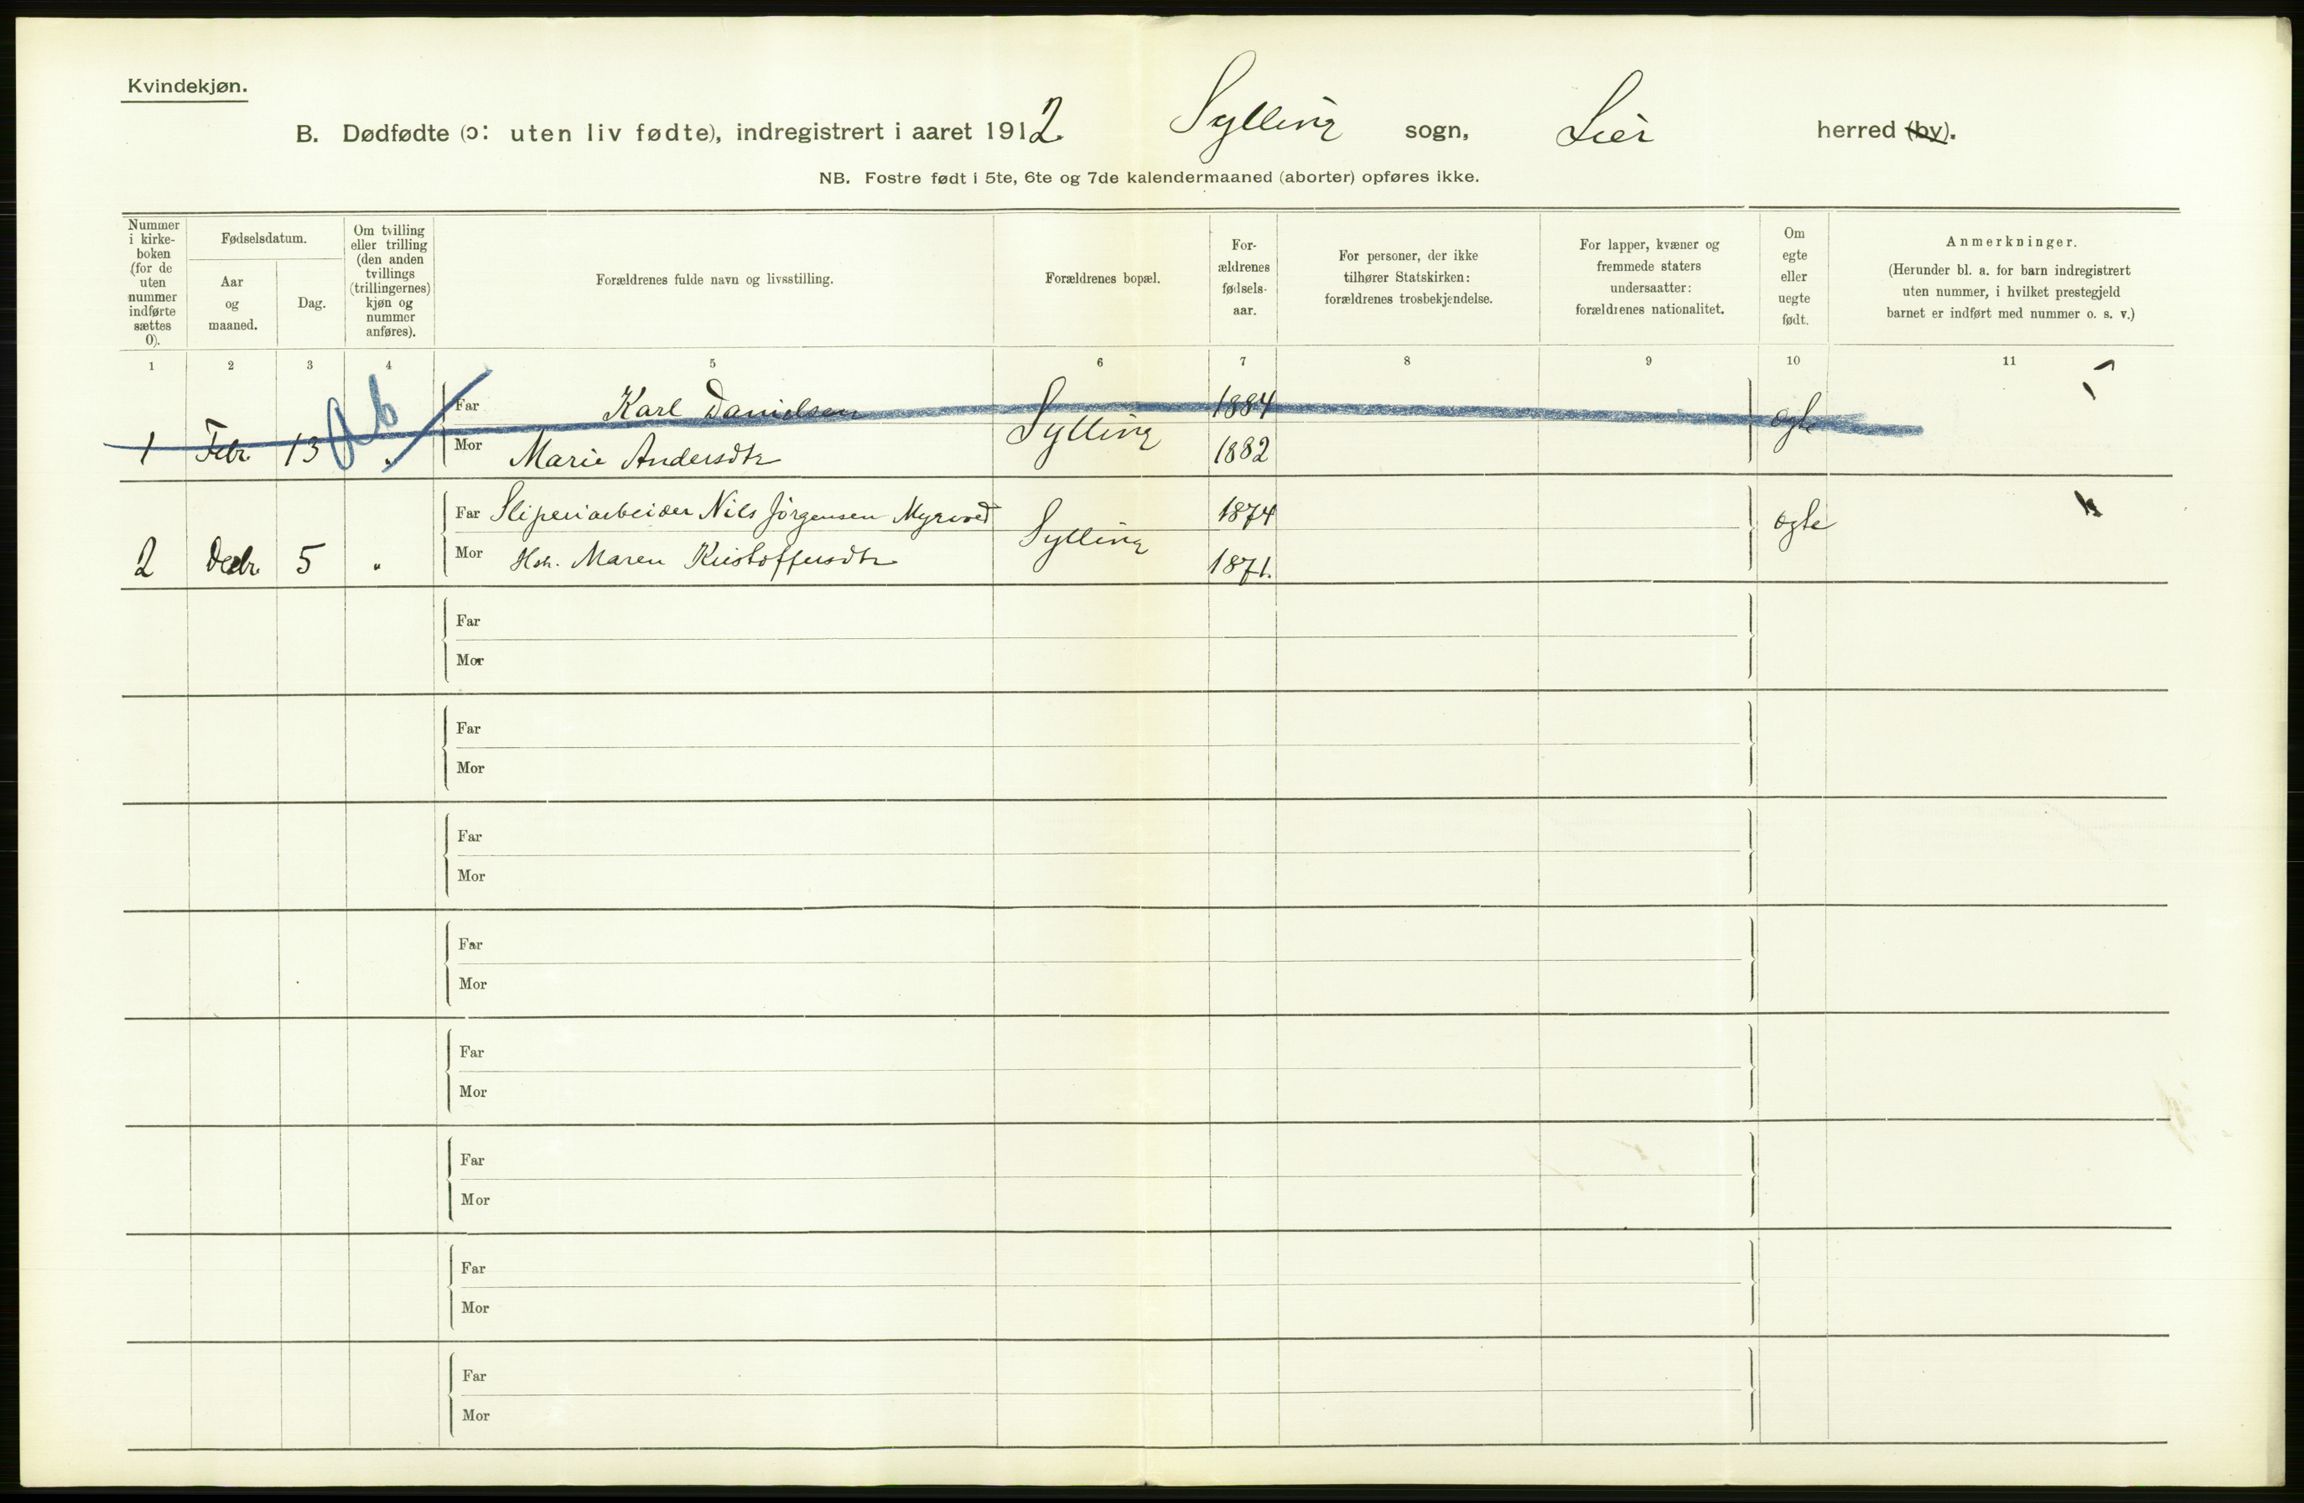 Kvindekjøn.
B. Dødfødte (ɔ: uten liv fødte), indregistrert i aaret 1912 Sylling sogn, Lier herred (by).
NB. Fostre født i 5te, 6te og 7de kalendermaaned (aborter) opføres ikke.
Nummer i kirke-boken (for de uten nummer indførte sættes 0).
Fødselsdatum.
Aar og maaned.
Dag.
Om tvilling eller trilling (den anden tvillings (trillingernes) kjøn og nummer anføres).
Forældrenes fulde navn og livsstilling.
Forældrenes bopæl.
For-ældrenes fødsels-aar.
For personer, der ikke tilhører Statskirken: forældrenes trosbekjendelse.
For lapper, kvæner og fremmede staters undersaatter: forældrenes nationalitet.
Om egte eller uegte født.
Anmerkninger.
(Herunder bl. a. for barn indregistrert uten nummer, i hvilket prestegjeld barnet er indført med nummer o. s. v.)
1 2 3 4 5 6 7 8 9 10 11
Ab
Far Karl Danielsen 1884
1 Febr. 13 " Mor Marie Andersdtr Sylling 1882 egte
Far Sliperiarbeider Nils Jørgensen Myrved 1874
2 Decbr. 5 " Mor Hstr. Maren Kristoffersdtr Sylling 1871. egte
Far
Mor
Far
Mor
Far
Mor
Far
Mor
Far
Mor
Far
Mor
Far
Mor
Far
Mor